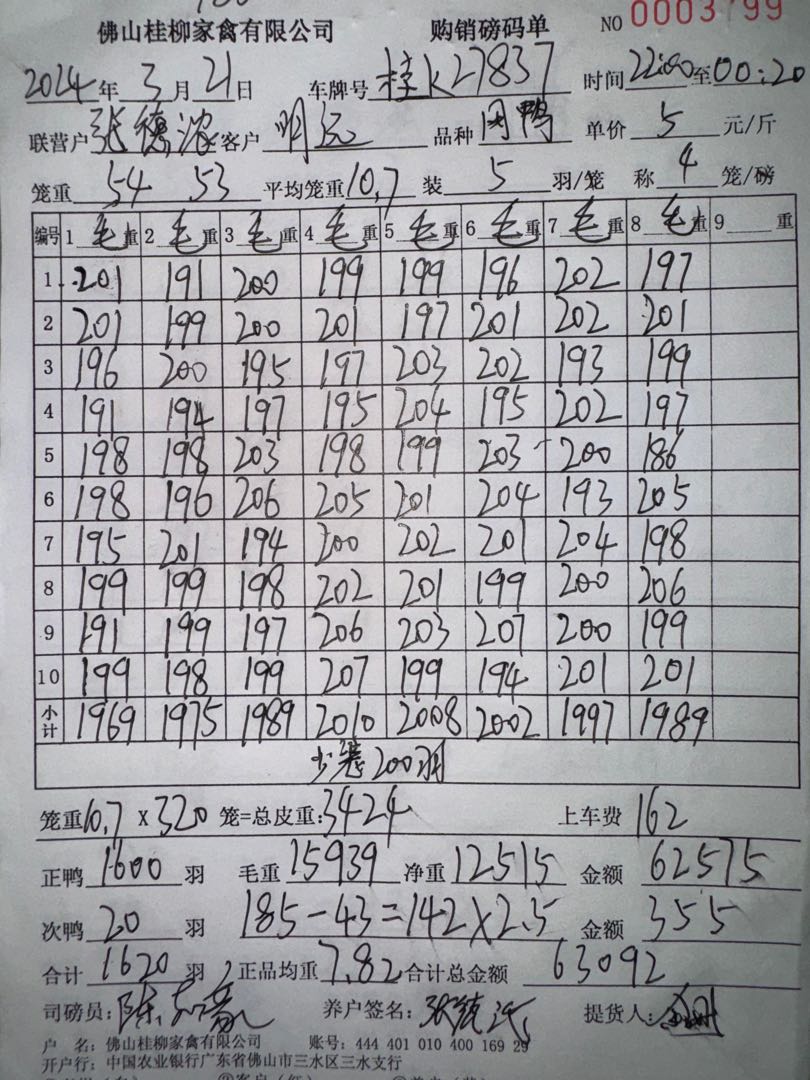 佛山桂柳家禽有限公司 购销磅码单 NO 0003799
2024年 3月 21日 车牌号 桂K27837 时间 22:00至00:20
联营户 张德浓 客户 明远 品种 肉鸭 单价 5 元/斤
笼重 54 53 平均笼重 10.7 装 5 羽/笼 称 4 笼/磅
编号 1 毛 重 2 毛 重 3 毛 重 4 毛 重 5 毛 重 6 毛 重 7 毛 重 8 毛 重 9 重
1 201 191 200 199 199 196 202 197
2 201 199 200 201 197 201 202 201
3 196 200 195 197 203 202 193 199
4 191 194 197 195 204 195 202 197
5 198 198 203 198 199 203 200 186
6 198 196 206 205 201 204 193 205
7 195 201 194 200 202 201 204 198
8 199 199 198 202 201 199 200 206
9 191 199 197 206 203 207 200 199
10 199 198 199 207 199 194 201 201
小计 1969 1975 1989 2010 2008 2002 1997 1989
少装200羽
笼重10.7 X 320 笼=总皮重:3424 上车费 162
正鸭 1600 羽 毛重 15939 净重 12515 金额 62575
次鸭 20 羽 185-43=142X2.5 金额 355
合计 1620 羽 正品均重 7.82 合计总金额 63092
司磅员: 养户签名: 提货人:
户 名: 佛山桂柳家禽有限公司 账号: 444 401 010 400 169 29
开户行: 中国农业银行广东省佛山市三水区三水支行